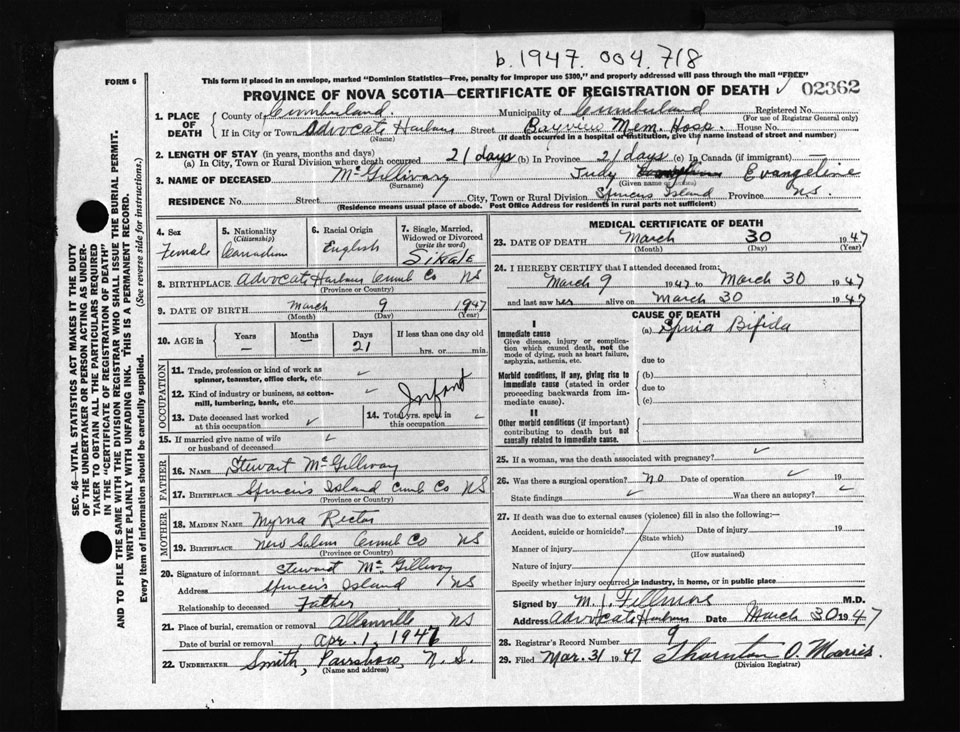 b.1947.004.718
FORM 6
This form if placed in an envelope, marked "Dominion Statistics—Free, penalty for improper use $300," and properly addressed will pass through the mail "FREE"
PROVINCE OF NOVA SCOTIA—CERTIFICATE OF REGISTRATION OF DEATH ✓ 02362
SEC. 46—VITAL STATISTICS ACT MAKES IT THE DUTY
OF THE UNDERTAKER OR PERSON ACTING AS UNDER-
TAKER TO OBTAIN ALL THE PARTICULARS REQUIRED
IN THE "CERTIFICATE OF REGISTRATION OF DEATH"
AND TO FILE THE SAME WITH THE DIVISION REGISTRAR WHO SHALL ISSUE THE BURIAL PERMIT.
WRITE PLAINLY WITH UNFADING INK. THIS IS A PERMANENT RECORD.
Every item of Information should be carefully supplied. (See reverse side for instructions.)
1. PLACE OF DEATH
County of Cumberland Municipality of Cumberland Registered No.
(For use of Registrar General only)
If in City or Town Advocate Harbour Street Bayview Mem. Hosp. House No.
(Name) (If death occurred in a hospital or institution, give the name instead of street and number)
2. LENGTH OF STAY (in years, months and days)
(a) In City, Town or Rural Division where death occurred 21 days (b) In Province 21 days (c) In Canada (if immigrant) —
3. NAME OF DECEASED McGillivary Judy Evangeline
(Surname) (Given name or names)
RESIDENCE No. Street City, Town or Rural Division Spencers Island Province N.S.
(Residence means usual place of abode. Post Office Address for residents in rural parts not sufficient)
4. Sex Female
5. Nationality (Citizenship) Canadian
6. Racial Origin English
7. Single, Married, Widowed or Divorced (write the word)
8. BIRTHPLACE Advocate Harbour Cumb Co NS
(Province or Country)
9. DATE OF BIRTH March 9 1947
(Month) (Day) (Year)
10. AGE in Years Months Days 21 If less than one day old
hrs. or min.
OCCUPATION
11. Trade, profession or kind of work as
spinner, teamster, office clerk, etc. ✓
12. Kind of industry or business, as cotton-
mill, lumbering, bank, etc. ✓ Infant
13. Date deceased last worked
at this occupation ✓
14. Total yrs. spent in
this occupation ✓
15. If married give name of wife
or husband of deceased ✓
FATHER
16. NAME Stewart McGillivary
17. BIRTHPLACE Spencers Island Cumb Co NS
(Province or Country)
MOTHER
18. MAIDEN NAME Myrna Rector
19. BIRTHPLACE New Salem Cumb Co NS
(Province or Country)
20. Signature of informant Stewart McGillivary
Address Spencers Island NS
Relationship to deceased Father
21. Place of burial, cremation or removal NS
Date of burial or removal Apr. 1, 1947
22. UNDERTAKER Smith, Parrsboro, N.S.
(Name and address)
MEDICAL CERTIFICATE OF DEATH
23. DATE OF DEATH March 30 1947
(Month) (Day) (Year)
24. I HEREBY CERTIFY that I attended deceased from:
March 9 1947 to March 30 1947
and last saw her alive on March 30 1947
CAUSE OF DEATH
I
Immediate cause
Give disease, injury or complica-
tion which caused death, not the
mode of dying, such as heart failure,
asphyxia, asthenia, etc.
(a) Spina Bifida
due to
Morbid conditions, if any, giving rise to
immediate cause (stated in order
proceeding backwards from im-
mediate cause).
(b)
due to
(c)
II
Other morbid conditions (if important)
contributing to death but not
causally related to immediate cause.
25. If a woman, was the death associated with pregnancy? ✓
26. Was there a surgical operation? no Date of operation ✓ 19
State findings ✓ Was there an autopsy? ✓
27. If death was due to external causes (violence) fill in also the following:—
Accident, suicide or homicide? Date of injury 19
(State which)
Manner of injury
(How sustained)
Nature of injury
Specify whether injury occurred in industry, in home, or in public place
Signed by M. J. Fillmore M.D.
Address Advocate Harbour Date March 30 1947
28. Registrar's Record Number 9
29. Filed Mar. 31 1947 Thornton O. Morris.
(Division Registrar)